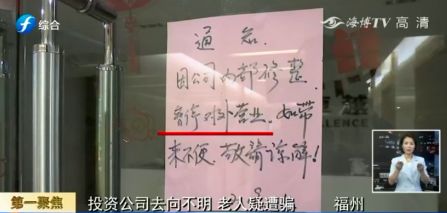 综合
海博TV 高清
通知.
因公司内部修整.
暂停对外营业. 如带
来不便. 敬请谅解!
LLENCE
第一聚焦
投资公司去向不明 老人疑遭骗
福州